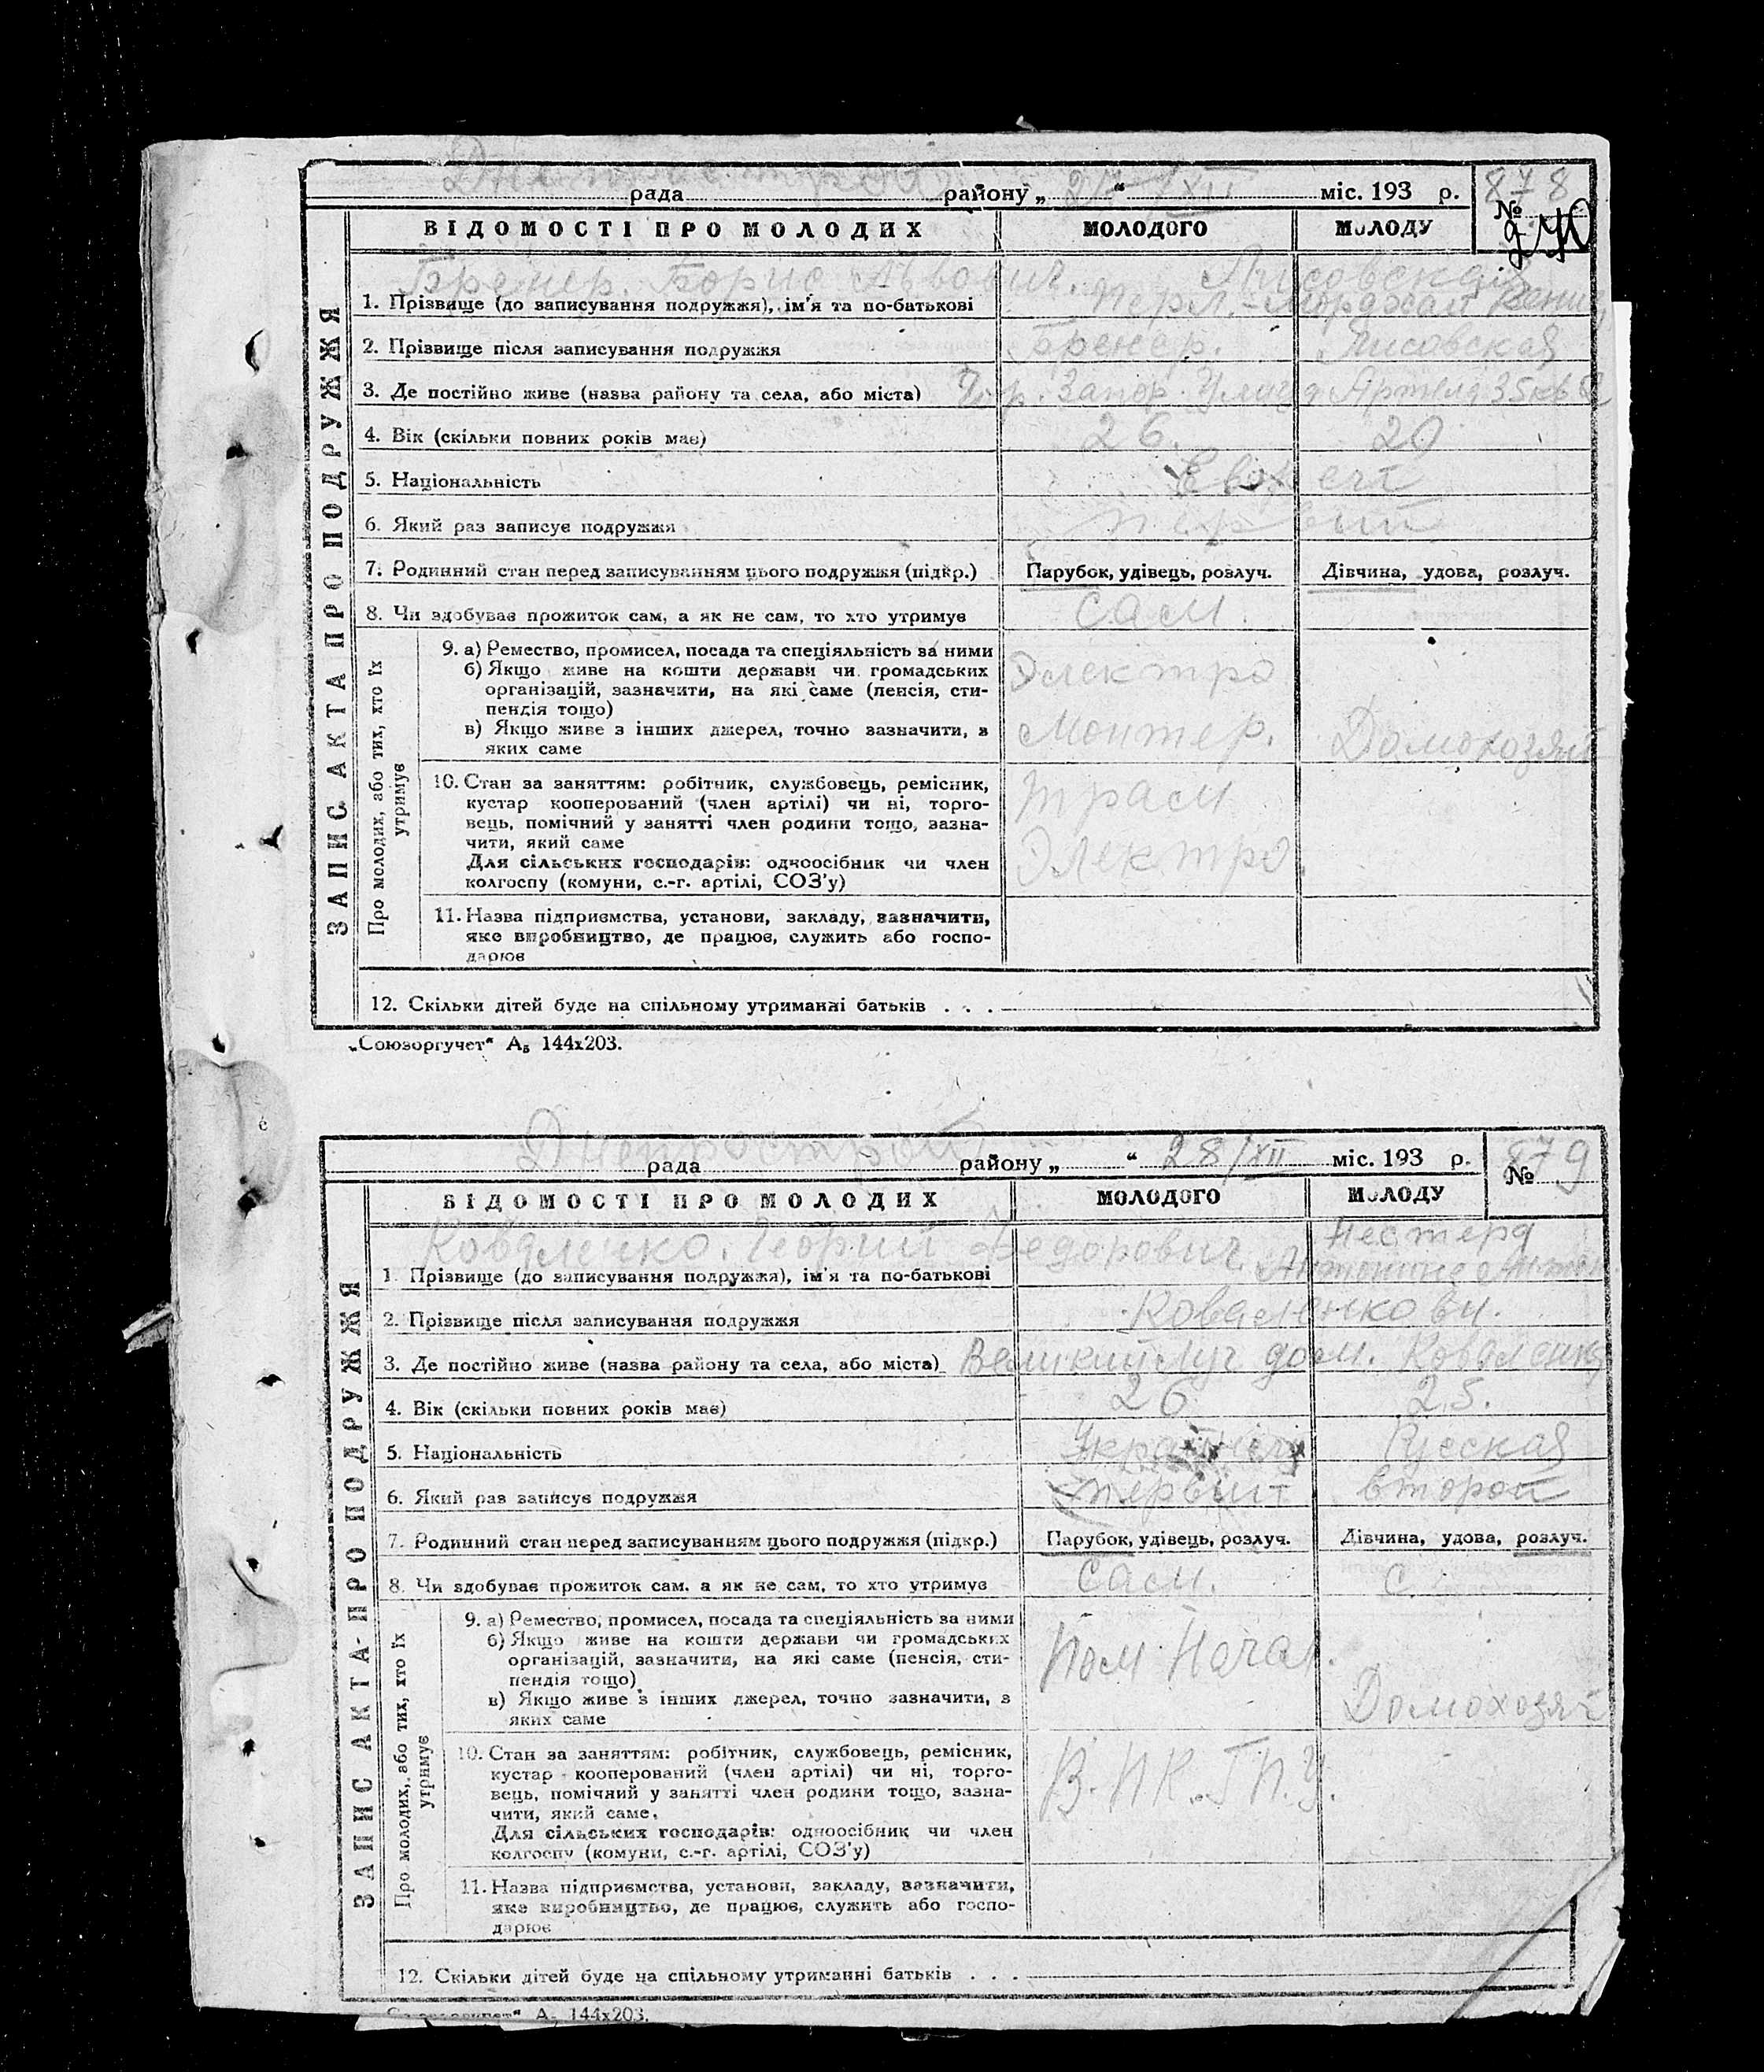 Днепрострой
рада районy „ 27 “ XII міс. 193 р. 878
№
240
ВІДОМОСТІ ПРО МОЛОДИХ МОЛОДОГО МОЛОДУ
ЗАПИС АКТА ПРО ПОДРУЖЖЯ
Бренер. Борис Львович. Лисовская
1. Прізвище (до записування подружжя), ім'я та по-батькові
2. Прізвище після записування подружжя Бренер. Лисовская
3. Де постійно живе (назва району та села, або міста) Запор. Улица Артема 35 кв
4. Вік (скільки повних років має) 26. 20
5. Національність Евреи
6. Який раз записує подружжя первый
7. Родинний стан перед записуванням цього подружжя (підкр.) Парубок, удівець, розлуч. Дівчина, удова, розлуч.
8. Чи здобуває прожиток сам, а як не сам, то хто утримує сам.
Про молодих, або тих, хто їх утримує
9. а) Ремество, промисел, посада та спеціяльність за ними
б) Якщо живе на кошти держави чи громадських
організацій, зазначити, на які саме (пенсія, сти-
пендія тощо)
в) Якщо живе з інших джерел, точно зазначити, з
яких саме
Электро
Монтер. Домохозяй
10. Стан за заняттям: робітник, службовець, ремісник,
кустар кооперований (член артілі) чи ні, торго-
вець, помічний у занятті член родини тощо, зазна-
чити, який саме
Для сільських господарів: одноосібник чи член
колгоспу (комуни, с.-г. артілі, СОЗ'у)
Трам
Электро.
11. Назва підприємства, установи, закладу, зазначити,
яке виробництво, де працює, служить або госпо-
дарює
12. Скільки дітей буде на спільному утриманні батьків . . .
„Союзоргучет“ А₅ 144х203.
Днепрострой
рада району „ “ 28/XII міс. 193 р. 879
№
ВІДОМОСТІ ПРО МОЛОДИХ МОЛОДОГО МОЛОДУ
ЗАПИС АКТА ПРО ПОДРУЖЖЯ
Коваленко. Георгий Федорович. Нестера
1. Прізвище (до записування подружжя), ім'я та по-батькові Антонина Антон
2. Прізвище після записування подружжя Коваленкови.
3. Де постійно живе (назва району та села, або міста) Великий Луг дом. Коваленко
4. Вік (скільки повних років має) 26. 25.
5. Національність Украинец Русская
6. Який раз записує подружжя первый второй
7. Родинний стан перед записуванням цього подружжя (підкр.) Парубок, удівець, розлуч. Дівчина, удова, розлуч.
8. Чи здобуває прожиток сам, а як не сам, то хто утримує сам. с.
Про молодих, або тих, хто їх утримує
9. а) Ремество, промисел, посада та спеціяльність за ними
б) Якщо живе на кошти держави чи громадських
організацій, зазначити, на які саме (пенсія, сти-
пендія тощо)
в) Якщо живе з інших джерел, точно зазначити, з
яких саме
Пом Начал.
Домохозяй
10. Стан за заняттям: робітник, службовець, ремісник,
кустар кооперований (член артілі) чи ні, торго-
вець, помічний у занятті член родини тощо, зазна-
чити, який саме.
Для сільських господарів: одноосібник чи член
колгоспу (комуни, с.-г. артілі, СОЗ'у)
Г.П.У.
11. Назва підприємства, установи, закладу, зазначити,
яке виробництво, де працює, служить або госпо-
дарює
12. Скільки дітей буде на спільному утриманні батьків . . .
„Союзоргучет“ А₅ 144х203.